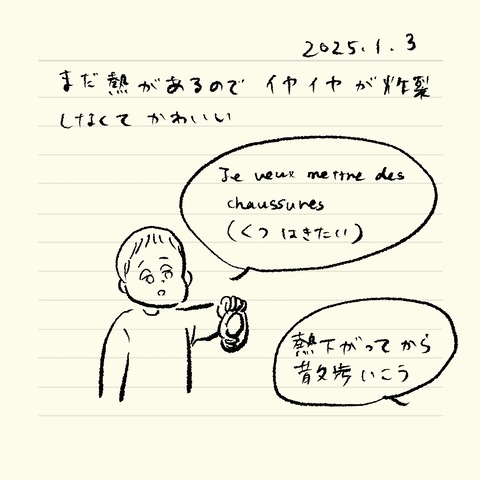 2025.1.3
まだ熱があるので イヤイヤが炸裂
しなくて かわいい
Je veux mettre des
chaussures
(くつ はきたい)
熱下がってから
散歩いこう